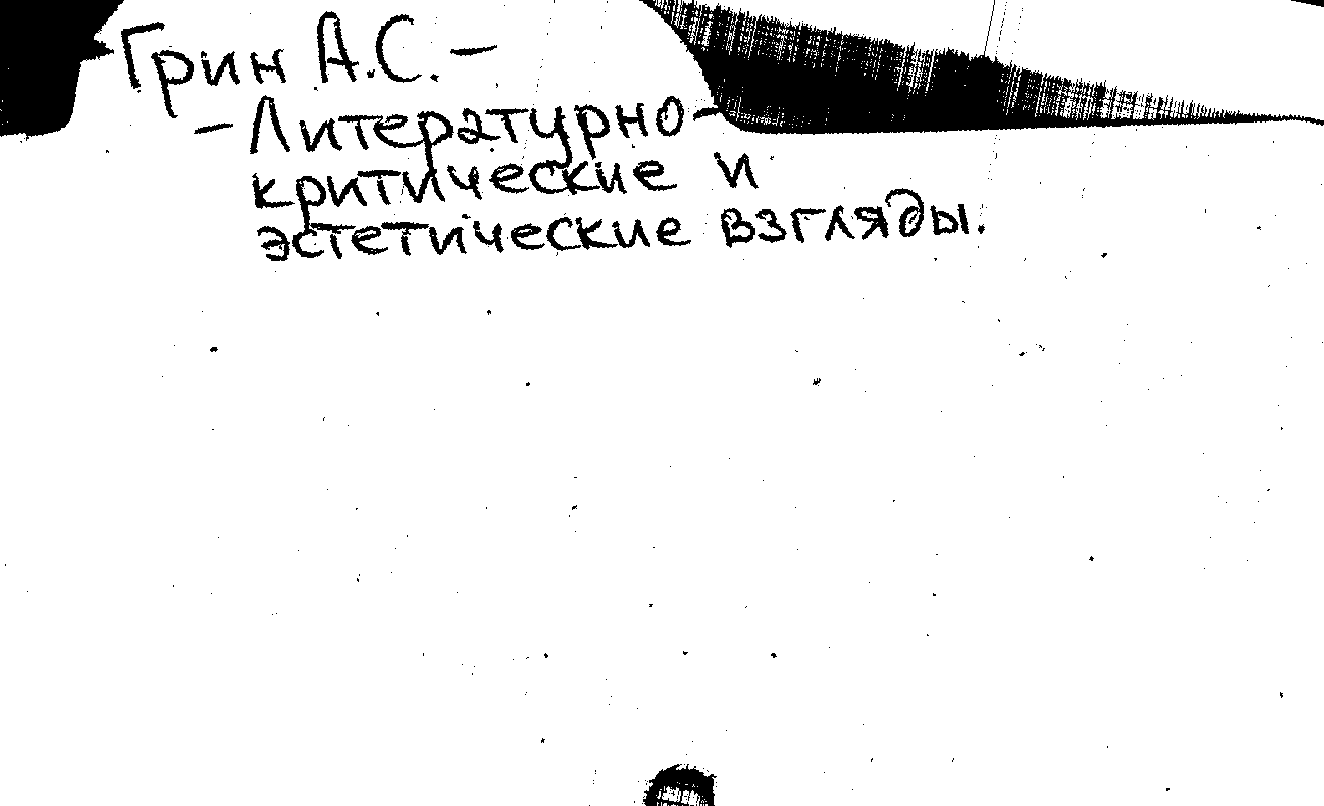 Грин А.С. –
– Литературно-
критические и
эстетические взгляды.